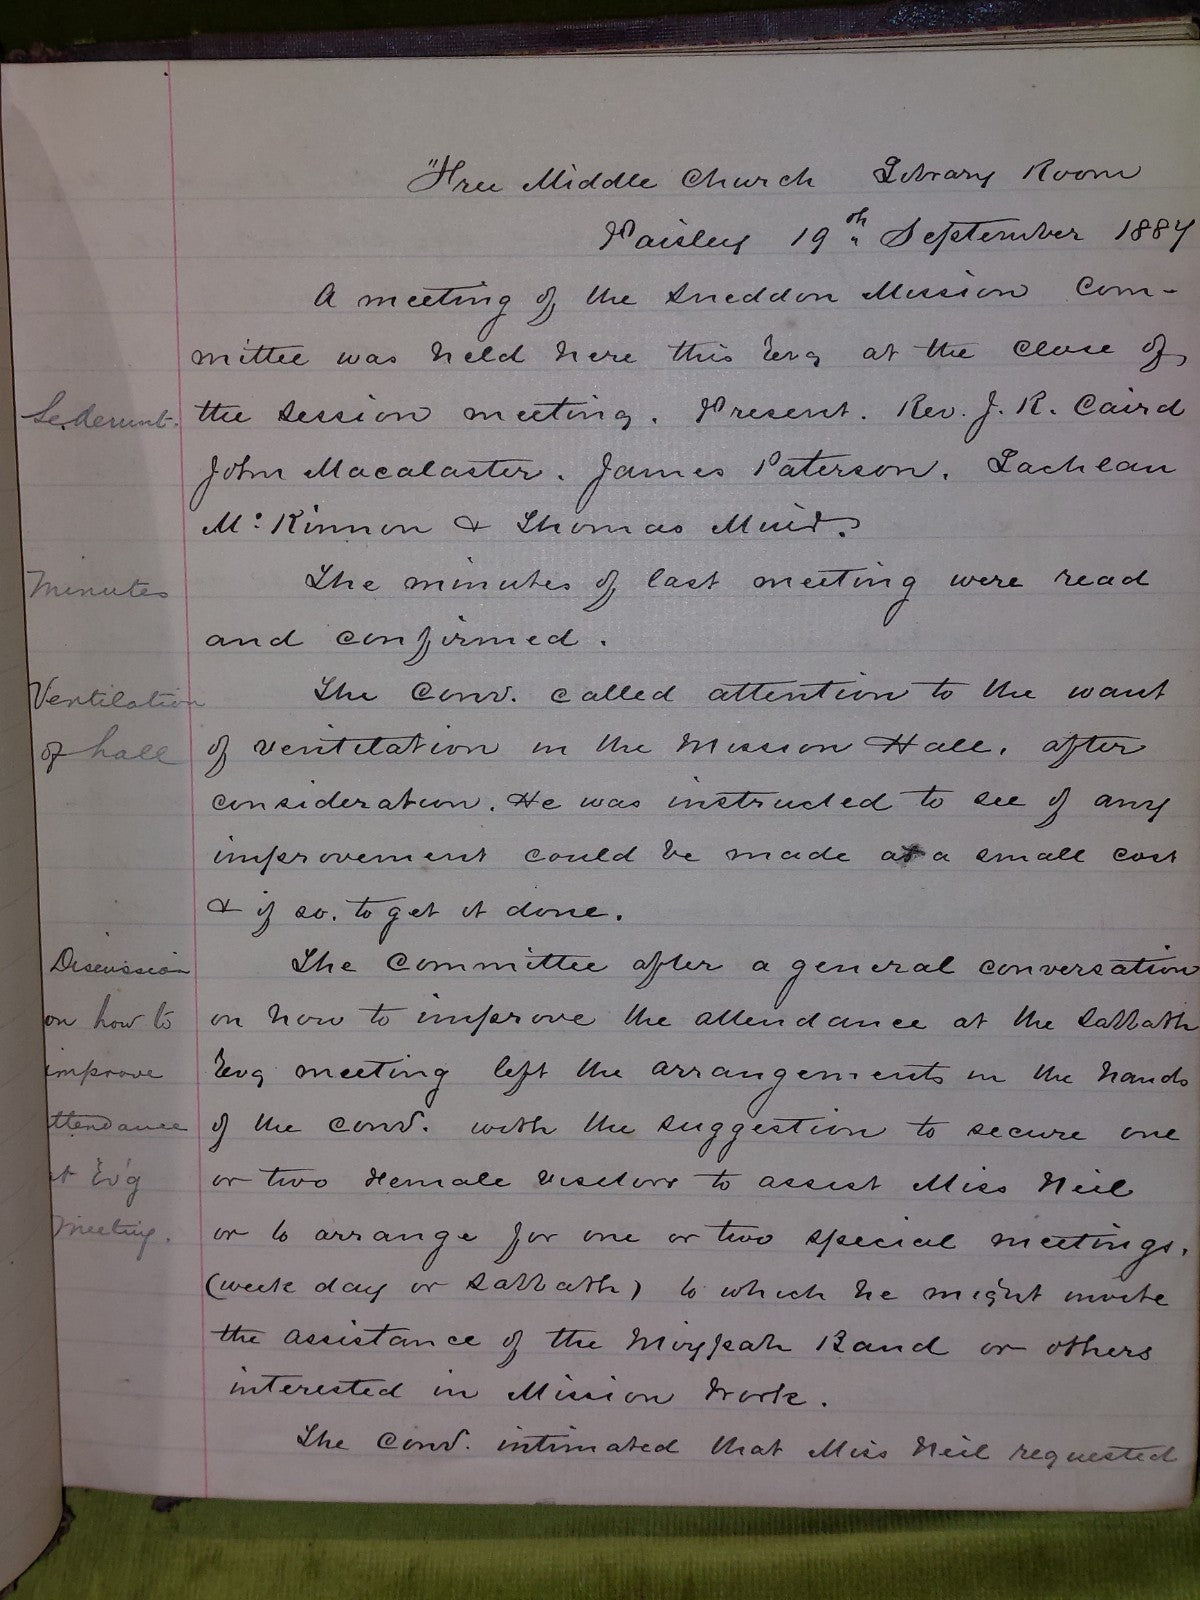 "Free Middle Church Library Room
Paisley 19th September 1887
A meeting of the Sneddon Mission Com-
mittee was held here this Evg at the close of
Sederunt. the Session meeting. Present. Rev. J. R. Caird
John Macalaster. James Paterson. Lachlan
Mc Kinnon & Thomas Muir.
Minutes The minutes of last meeting were read
and confirmed.
Ventilation The Conv. called attention to the want
of hall of ventilation in the Mission Hall, after
consideration. He was instructed to see if any
improvement could be made at a small cost
& if so. to get it done.
Discussion The Committee after a general conversation
on how to on how to improve the attendance at the Sabbath
improve Evg meeting left the arrangements in the hands
ttendance of the Conv. with the suggestion to secure one
t Ev'g or two Female visitors to assist Miss Neil
meeting. or to arrange for one or two special meetings,
(week day or Sabbath) to which he might invite
the assistance of the Band or others
interested in Mission Work.
The Conv. intimated that Miss Neil requested